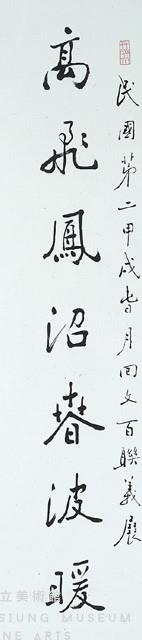 民國第二甲戌月回文百聯義展
高飛鳳沼春波暖
立美術館
SIUNG MUSEUM
INE ARTS